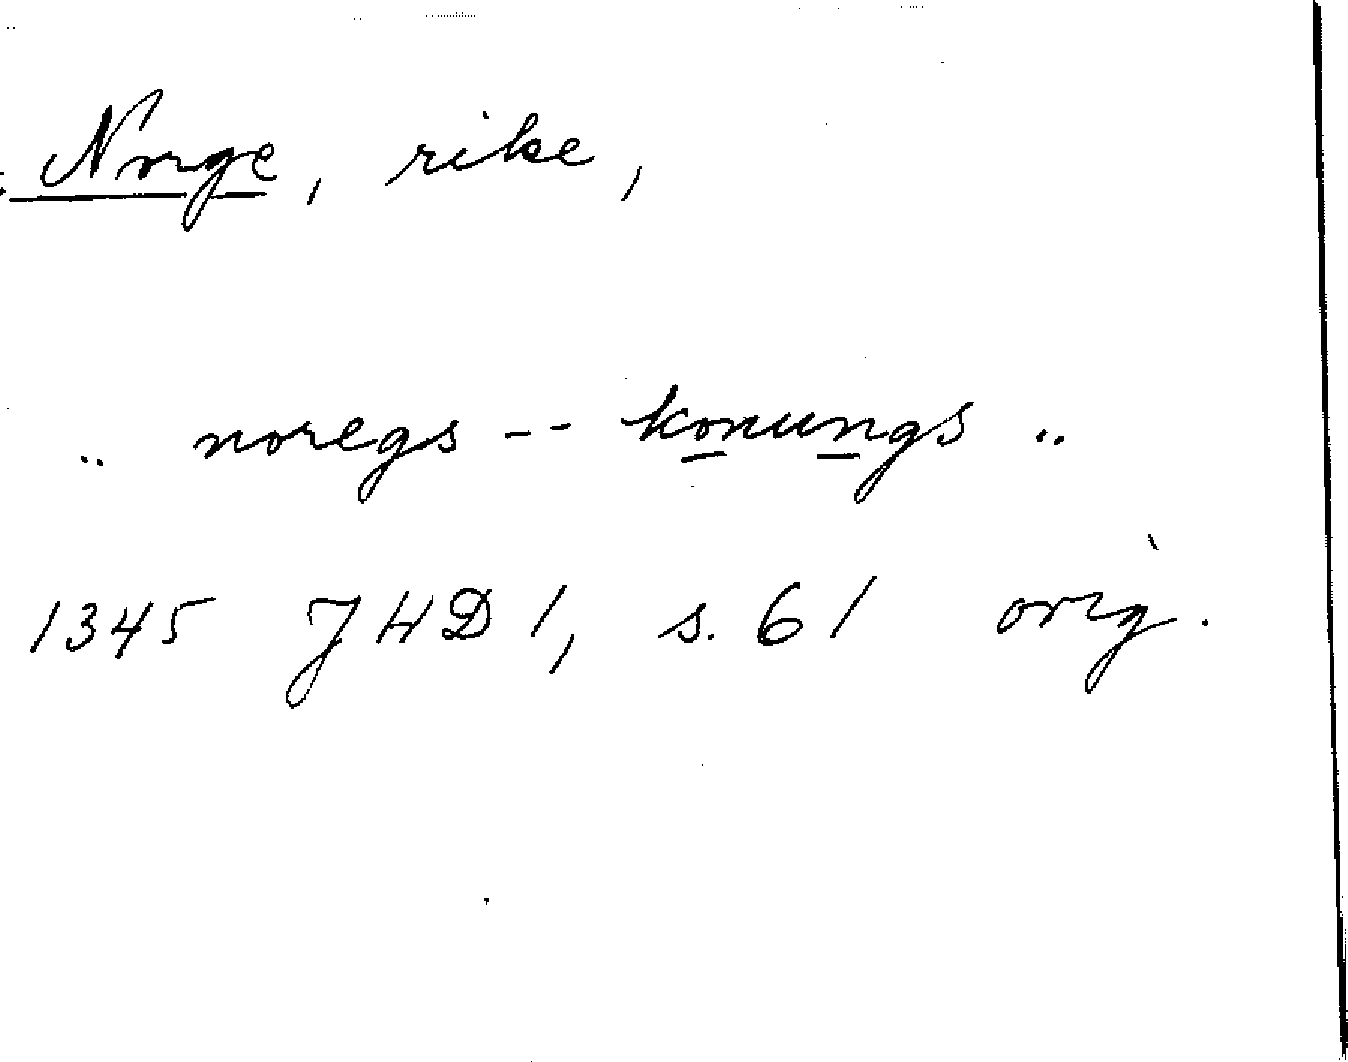 Norge, rike,
.. noregs -- konungs ..
1345 JHD 1, s. 61 orig.